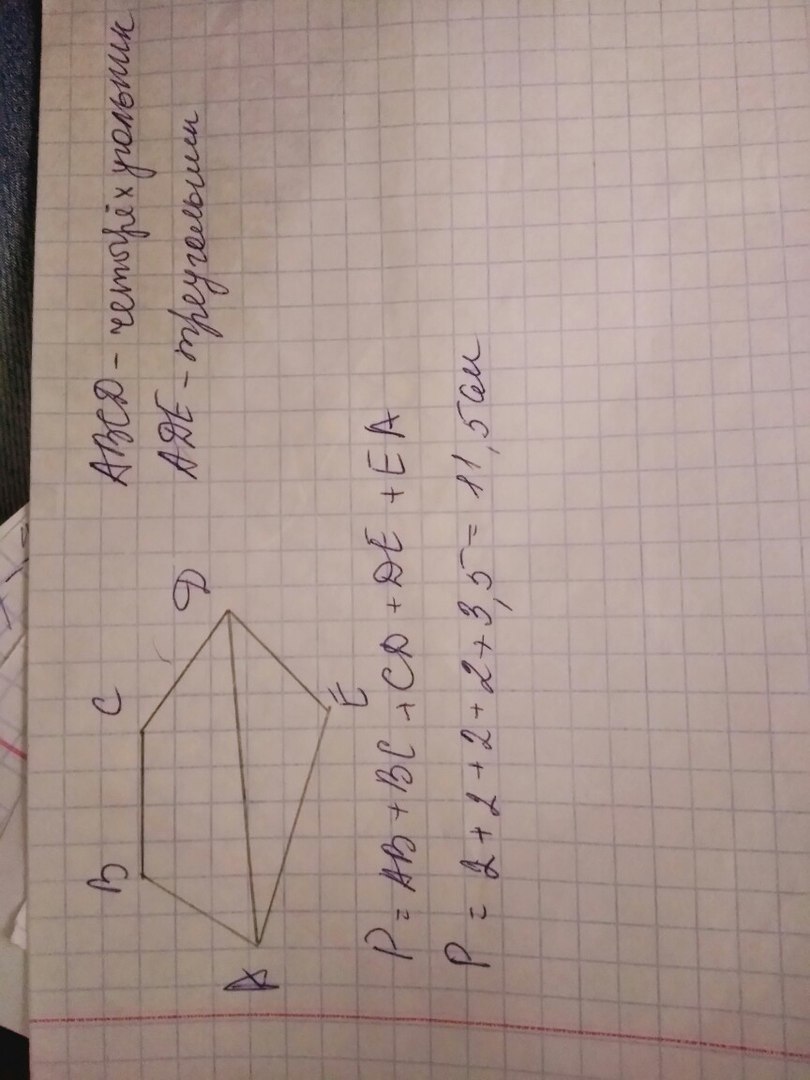 ABCD - четырёх угольник
ADE - треугольник
B C
D
A
E
P = AB + BC + CD + DE + EA
P = 2 + 2 + 2 + 2 + 3,5 = 11,5 см